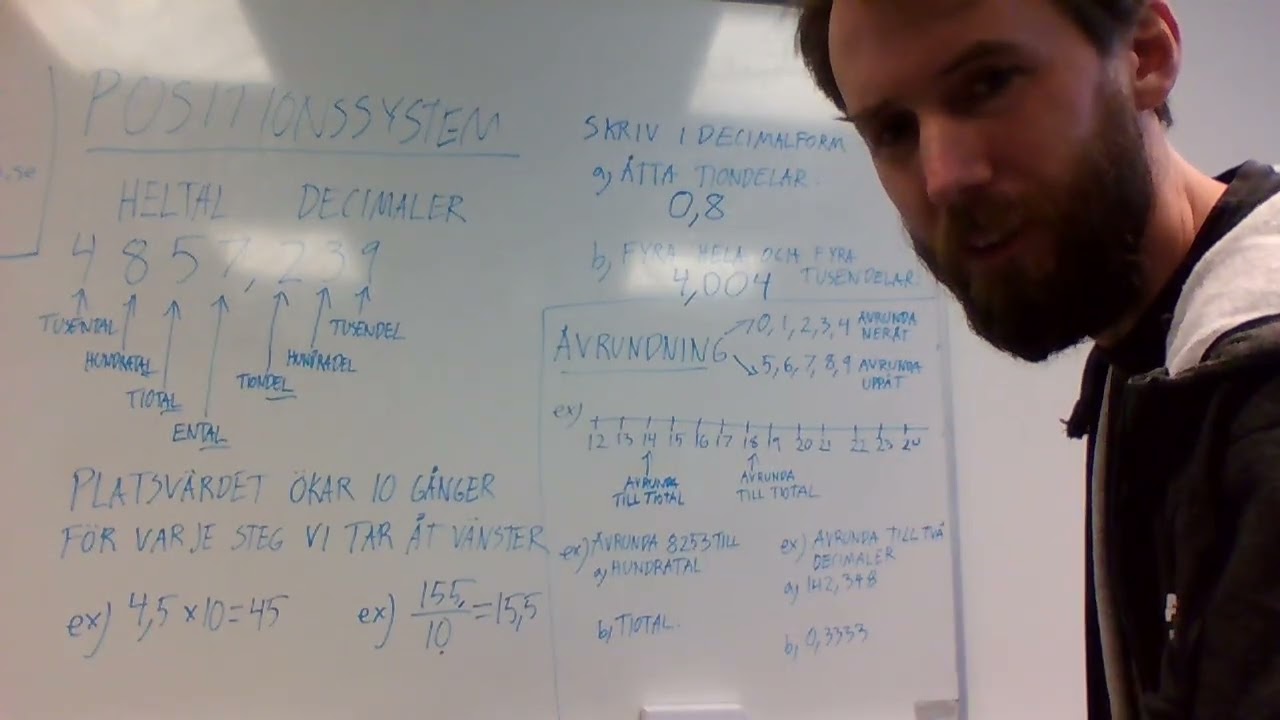 POSITIONSSYSTEM
HELTAL DECIMALER
4 8 5 7, 2 3 9
TUSENTAL
HUNDRATAL
TIOTAL
ENTAL
TIONDEL
HUNDRADEL
TUSENDEL
PLATSVÄRDET ÖKAR 10 GÅNGER
FÖR VARJE STEG VI TAR ÅT VÄNSTER
ex) 4,5 × 10 = 45
ex) 155, / 10 = 15,5
SKRIV I DECIMALFORM
a) ÅTTA TIONDELAR.
0,8
b) FYRA HELA OCH FYRA
4,004 TUSENDELAR.
AVRUNDNING
0, 1, 2, 3, 4 AVRUNDA
NERÅT
5, 6, 7, 8, 9 AVRUNDA
UPPÅT
ex)
12 13 14 15 16 17 18 19 20 21 22 23 24
AVRUNDA
TILL TIOTAL
AVRUNDA
TILL TIOTAL
ex) AVRUNDA 8253 TILL
a) HUNDRATAL
b) TIOTAL.
ex) AVRUNDA TILL TVÅ
DECIMALER
a) 142,348
b) 0,3333
.se